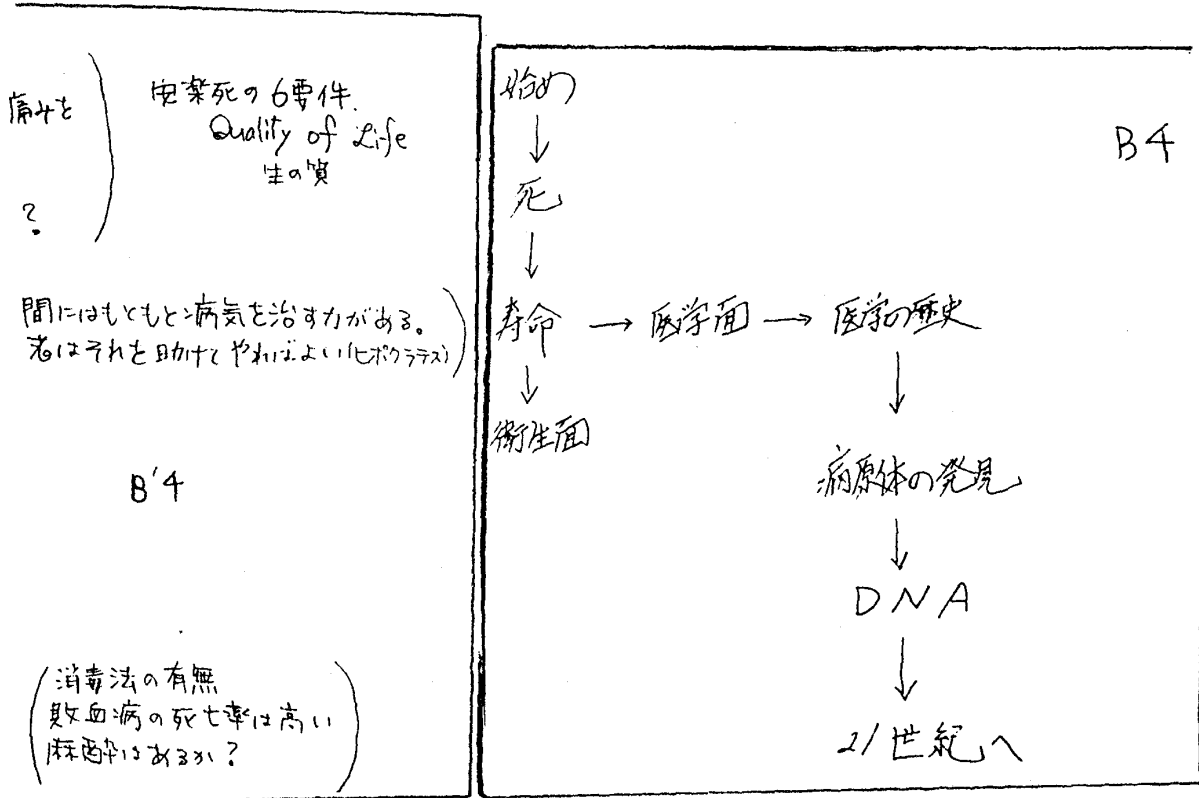 痛みを
?
安楽死の6要件.
Quality of Life
生の質
間にはもともと病気を治す力がある。
者はそれを助けてやればよい(ヒポクラテス)
B'4
消毒法の有無
敗血病の死亡率は高い
麻酔はあるか?
B4
始め
↓
死
↓
寿命 → 医学面 → 医学の歴史
↓
衛生面
↓
病原体の発見
↓
DNA
↓
21世紀へ